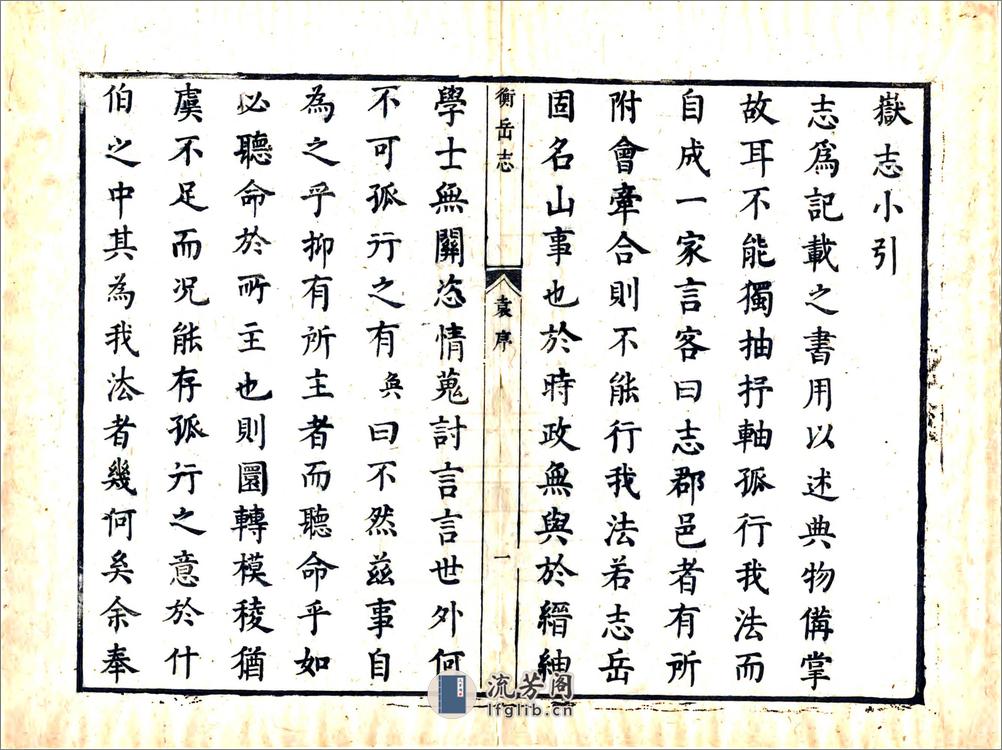 嶽志小引
志爲記載之書用以述典物備掌
故耳不能獨抽抒軸孤行我法而
自成一家言客曰志郡邑者有所
附會牽合則不能行我法若志岳
固名山事也於時政無與於縉紳
衡岳志
袁序
一
學士無關恣情蒐討言言世外何
不可孤行之有奐曰不然茲事自
為之乎抑有所主者而聽命乎如
必聽命於所主也則圜轉模稜猶
虞不足而况能存孤行之意於什
伯之中其為我法者幾何矣余奉
流芳阁
lfglib.cn